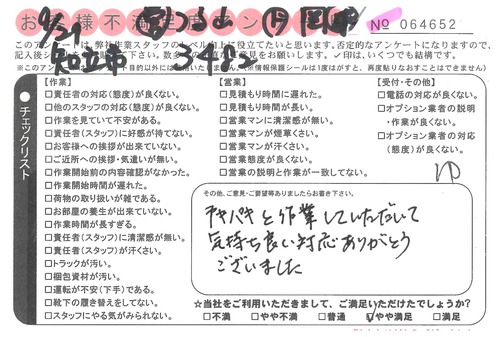 No 064652
9/21
知立市
このアンケートは、弊社作業スタッフのレベル向上に役立てたいと思います。否定的なアンケートになりますので、
(※このアンケートは、
チェックリスト
【作業】
□責任者の対応(態度)が良くない。
□他のスタッフの対応(態度)が良くない。
□作業を見ていて不安がある。
□責任者(スタッフ)に好感が持てない。
□お客様への挨拶が出来ていない。
□ご近所への挨拶・気遣いが無い。
□作業開始前の内容確認がなかった。
□作業開始時間が遅れた。
□荷物の取り扱いが雑である。
□お部屋の養生が出来ていない。
□作業時間が長すぎる。
□責任者(スタッフ)に清潔感が無い。
□責任者(スタッフ)が汗くさい。
□トラックが汚い。
□梱包資材が汚い。
□運転が不安(下手)である。
□靴下の履き替えをしてない。
□スタッフにやる気がみられない。
【営業】
□見積もり時間に遅れた。
□見積もり時間が長い。
□営業マンに清潔感が無い。
□営業マンが煙草くさい。
□営業マンが汗くさい。
□営業態度が良くない。
□営業の説明と作業が一致してない。
【受付・その他】
□電話の対応が良くない。
□オプション業者の説明
・作業が良くない。
□オプション業者の対応
(態度)が良くない。
その他、ご意見・ご要望等ありましたらお書き下さい。
テキパキと作業していただいて
気持ち良い対応ありがとう
ございました
☆当社をご利用いただきまして、ご満足いただけたでしょうか?
□不満 □やや不満 □普通 ☑やや満足 □満足